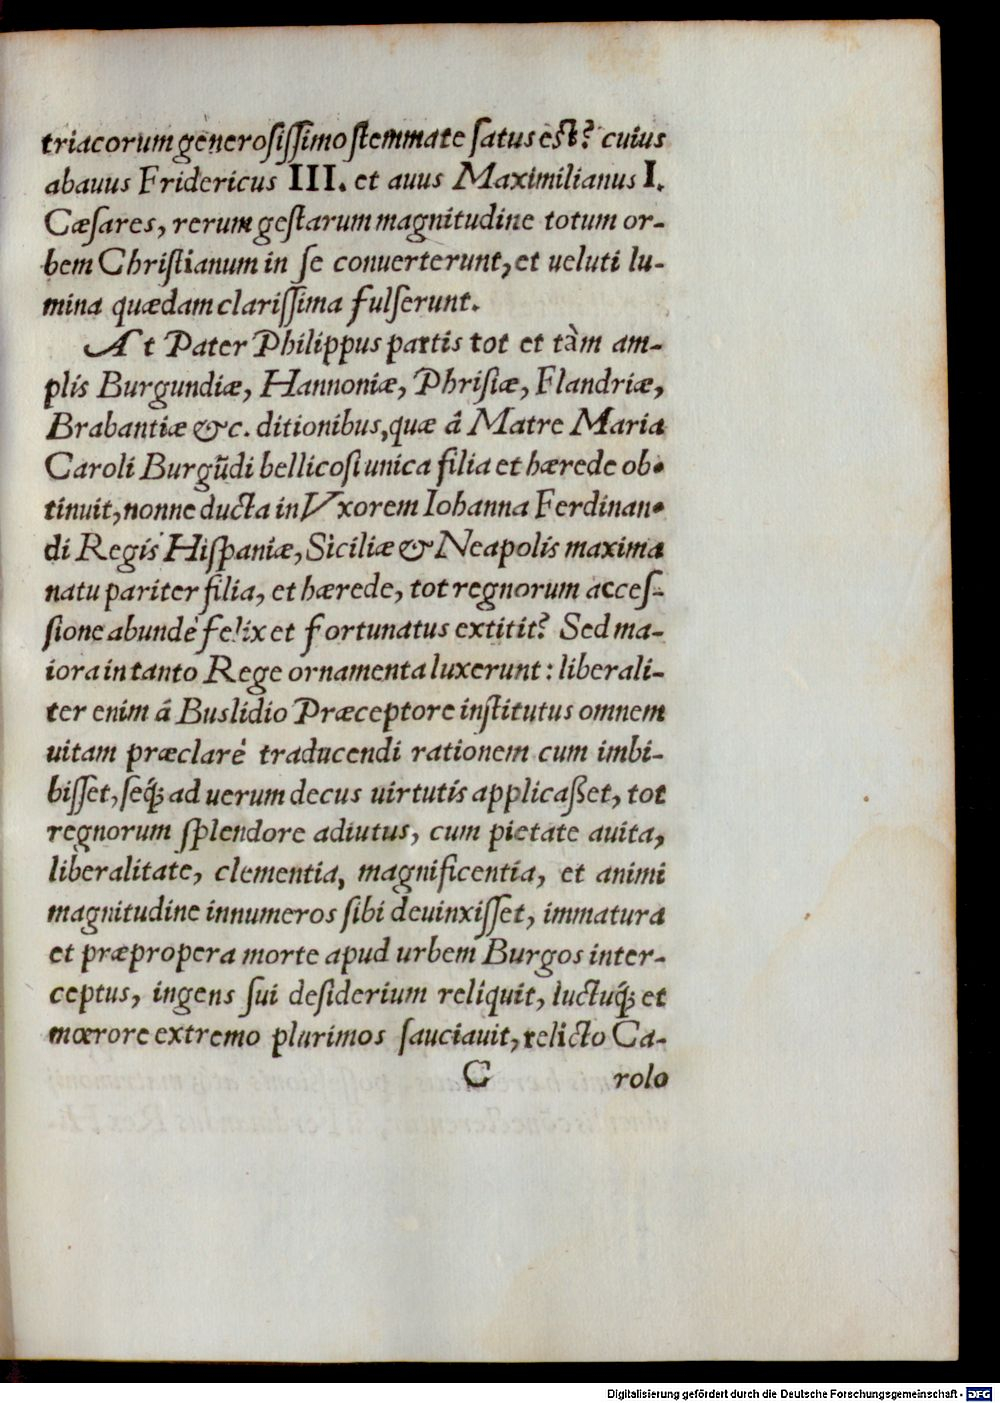 triacorum generosiſſimo ſtemmate ſatus eſt? cuius
abauus Fridericus III. et auus Maximilianus I.
Cæſares, rerum geſtarum magnitudine totum or-
bem Chriſtianum in ſe conuerterunt, et ueluti lu-
mina quædam clariſſima fulſerunt.
At Pater Philippus partis tot et tàm am-
plis Burgundiæ, Hannoniæ, Phriſiæ, Flandriæ,
Brabantiæ &c. ditionibus, quæ á Matre Maria
Caroli Burgūdi bellicoſi unica filia et hærede ob-
tinuit, nonne ducta in Vxorem Iohanna Ferdinan-
di Regis Hiſpaniæ, Siciliæ & Neapolis maxima
natu pariter filia, et hærede, tot regnorum acceſ-
ſione abundé felix et fortunatus extitit? Sed ma-
iora in tanto Rege ornamenta luxerunt: liberali-
ter enim á Buslidio Præceptore inſtitutus omnem
uitam præclaré traducendi rationem cum imbi-
biſſet, ſeq́ꝫ ad uerum decus uirtutis applicaßet, tot
regnorum ſplendore adiutus, cum pietate auita,
liberalitate, clementia, magnificentia, et animi
magnitudine innumeros ſibi deuinxiſſet, immatura
et præpropera morte apud urbem Burgos inter-
ceptus, ingens ſui deſiderium reliquit, luctuq́ꝫ et
mœrore extremo plurimos ſauciauit, relicto Ca-
C rolo
Digitalisierung gefördert durch die Deutsche Forschungsgemeinschaft - DFG